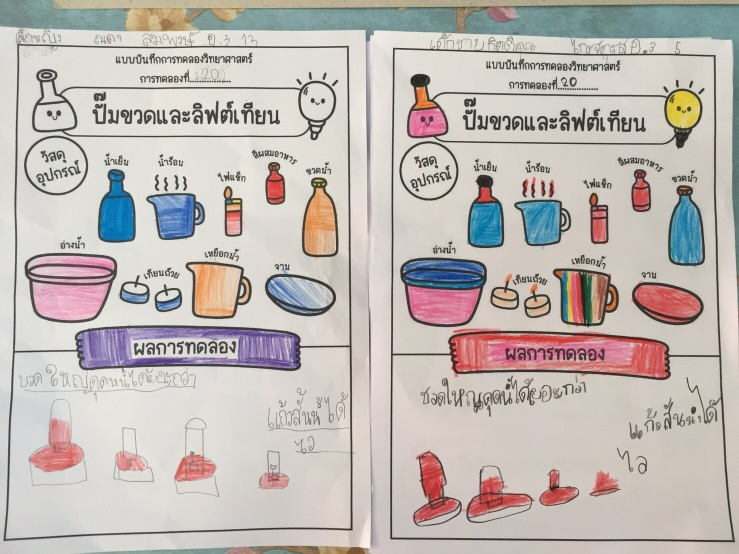 เด็กหญิง
อ.3 13
แบบบันทึกการทดลองวิทยาศาสตร์
การทดลองที่ 20
ปั๊มขวดและลิฟต์เทียน
วัสดุ
อุปกรณ์
น้ำเย็น
น้ำร้อน
ไฟแช็ก
สีผสมอาหาร
ขวดน้ำ
อ่างน้ำ
เทียนถ้วย
เหยือกน้ำ
จาน
ผลการทดลอง
ขวดใหญ่ดูดน้ำได้เยอะกว่า
แก้วสั้นน้ำได้
ไว
เด็กชาย กิตติคุณ อ.3 5
แบบบันทึกการทดลองวิทยาศาสตร์
การทดลองที่ 20
ปั๊มขวดและลิฟต์เทียน
วัสดุ
อุปกรณ์
น้ำเย็น
น้ำร้อน
ไฟแช็ก
สีผสมอาหาร
ขวดน้ำ
อ่างน้ำ
เทียนถ้วย
เหยือกน้ำ
จาน
ผลการทดลอง
ขวดใหญ่ดูดน้ำได้เยอะกว่า
แก้วสั้นน้ำได้
ไว